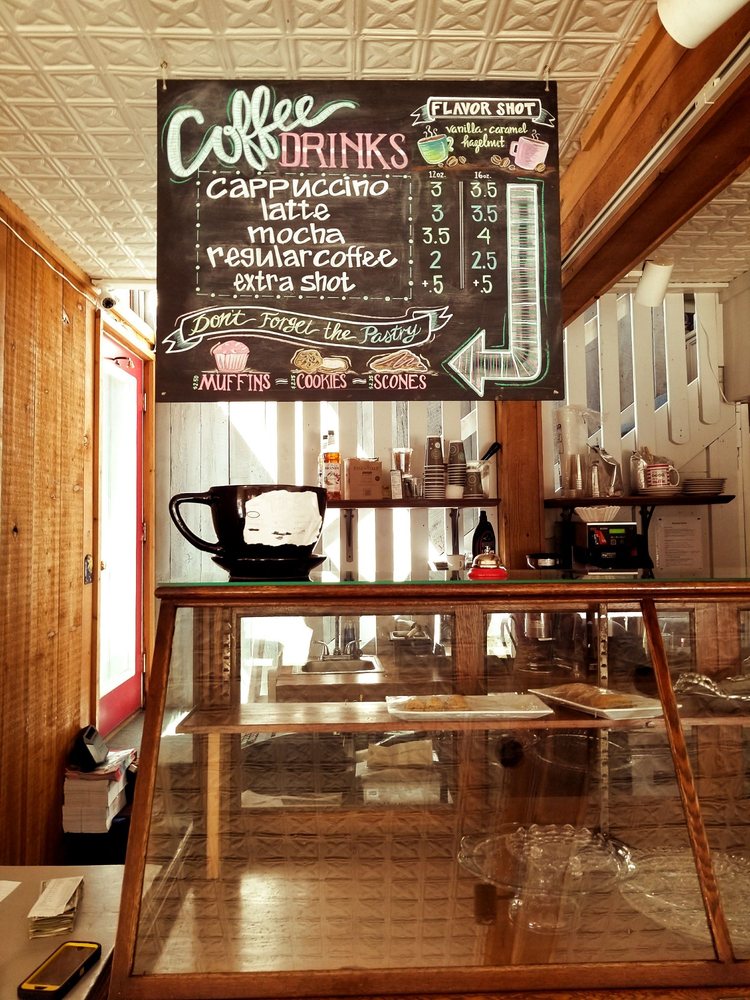 Coffee DRINKS
FLAVOR SHOT
vanilla • caramel
hazelnut
12oz. 16oz.
cappuccino 3 3.5
latte 3 3.5
mocha 3.5 4
regular coffee 2 2.5
extra shot +.5 +.5
Don't Forget the Pastry
MUFFINS - COOKIES - SCONES